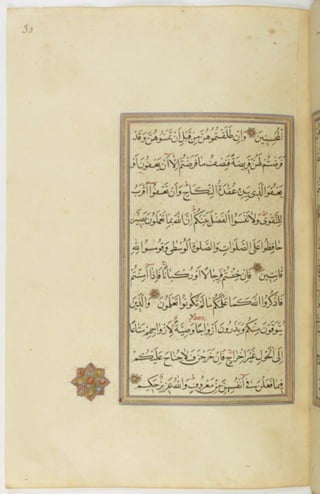 المحسنين وَاِن طَلَّقتُمُوهُنَّ مِن قَبلِ اَن تَمَسُّوهُنَّ وَقَد
فَرَضتُم لَهُنَّ فَرِيضَةً فَنِصفُ مَا فَرَضتُم اِلَّا اَن يَعفُونَ اَو
يَعفُوَا الَّذِي بِيَدِهِ عُقدَةُ النِّكَاحِ وَاَن تَعفُوا اَقرَبُ
لِلتَّقوٰى وَلَا تَنسَوُا الفَضلَ بَينَكُم اِنَّ اللّٰهَ بِمَا تَعمَلُونَ بَصِيرٌ
حَافِظُوا عَلَى الصَّلَوَاتِ وَالصَّلٰوةِ الوُسطٰى وَقُومُوا لِلّٰهِ
قَانِتِينَ فَاِن خِفتُم فَرِجَالًا اَو رُكبَانًا فَاِذَا اَمِنتُم
فَاذكُرُوا اللّٰهَ كَمَا عَلَّمَكُم مَا لَم تَكُونُوا تَعلَمُونَ وَالَّذِينَ
يُتَوَفَّونَ مِنكُم وَيَذَرُونَ اَزوَاجًا وَصِيَّةً لِاَزوَاجِهِم مَتَاعًا
اِلَى الحَولِ غَيرَ اِخرَاجٍ فَاِن خَرَجنَ فَلَا جُنَاحَ عَلَيكُم
فِيمَا فَعَلنَ فِي اَنفُسِهِنَّ مِن مَعرُوفٍ وَاللّٰهُ عَزِيزٌ حَكِيمٌ